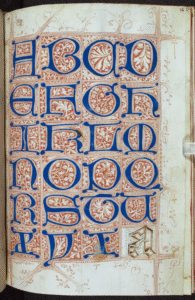 A B C D
E F G H
I K L M
N O P Q
R S T U
X Y Z